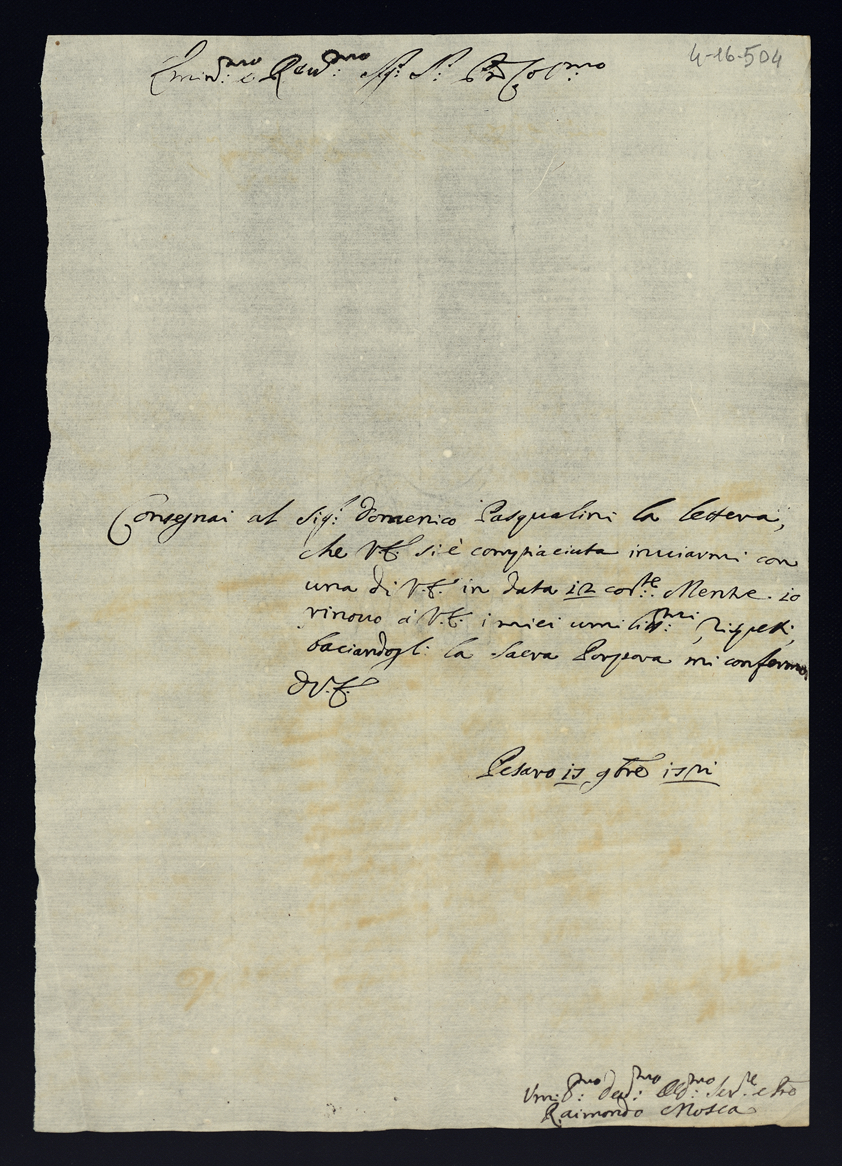 4-16-504
Emin:mo e Rev:mo Sig:r S:r P:ne Col:mo
Consegnai al Sig:r Domenico Pasqualini la lettera,
che V.E. si è compiaciuta inuiarmi con
una di V.E. in data 12 cor:te. Mentre io
rinouo à V.E. i miei umiliss:mi rispetti,
baciandogli la Sacra Porpora mi confermo
D V.E.
Pesaro 15 9bre
Um:mo Dev:mo Obb:mo Ser:re e
Raimondo Mosca